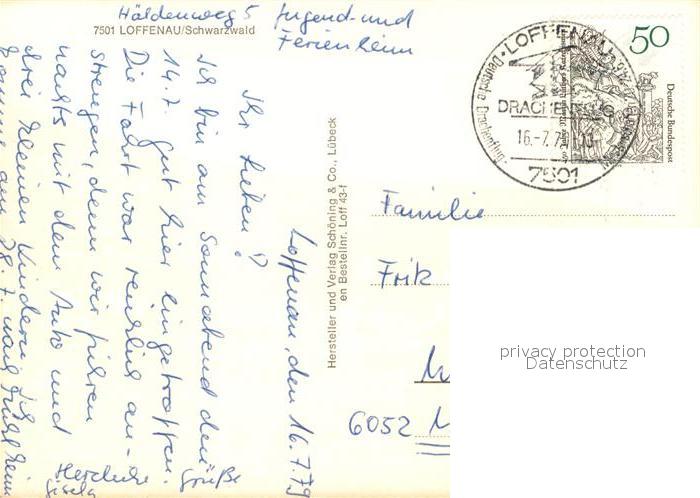 Häldenweg 5 Jugend- und
Ferienheim
7501 LOFFENAU/Schwarzwald
Loffenau, den 16.7.79
Ihr Lieben!
Ich bin am Sonnabend den
14.7. gut hier eingetroffen.
Die Fahrt war reichlich an-
strengend, denn wir fuhren
nachts mit dem Auto und
drei kleinen Kindern. Ich
komme am 28.7. nach
Herzliche Grüße
Gisela
Hersteller und Verlag Schöning & Co., Lübeck
en Bestellnr. Loff 43-f
LOFFENAU
DRACHENFLUG
16.-7.79
7501
50
Deutsche Bundespost
Familie
6052 M
privacy protection
Datenschutz